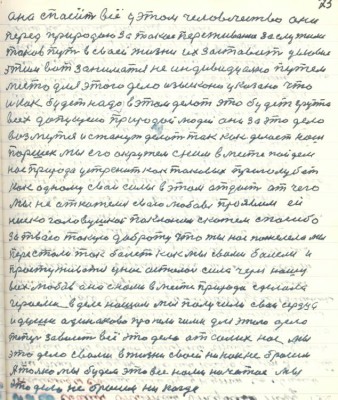 75
она спасёт всё у этом человечество они
перед природою за такие переживания заслужили
таков путь в своей жизни их заставит условие
этим вот занимаятся не индивидуально путем
место для этого дело изыскано указано что
и как будет надо в этом делать это будет группа
всех допущено природой людей она за это дело
возмутся и станут делать так как делает наш
Паршек мы его окружем с ним вместе пойдем
нас природа устренит как таковых приголубит
как одному свои силы в этом отдаст от чего
мы не откажемся свою любовь проявим ей
низко головушкой поклонимся скажем спасибо
за твою такую доброту это ты нас пожелела мы
перестали так болеть как мы свами болели и
простуживался у нас осталось сила через нашу
всех любов она с нами вместе природа сделала
героем в деле нашем мы получили своё сердце
и душа одинаково протягиями для этого дело
тепер зависит всё это дело от самих нас мы
это дело свами в жизни своей никак не бросим
А только мы будем это все нами начатое мы
это дело не бросим ни когда